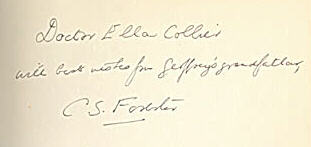 Doctor Ella Collier
with best wishes from Geoffrey's grandfather,
C S. Forester